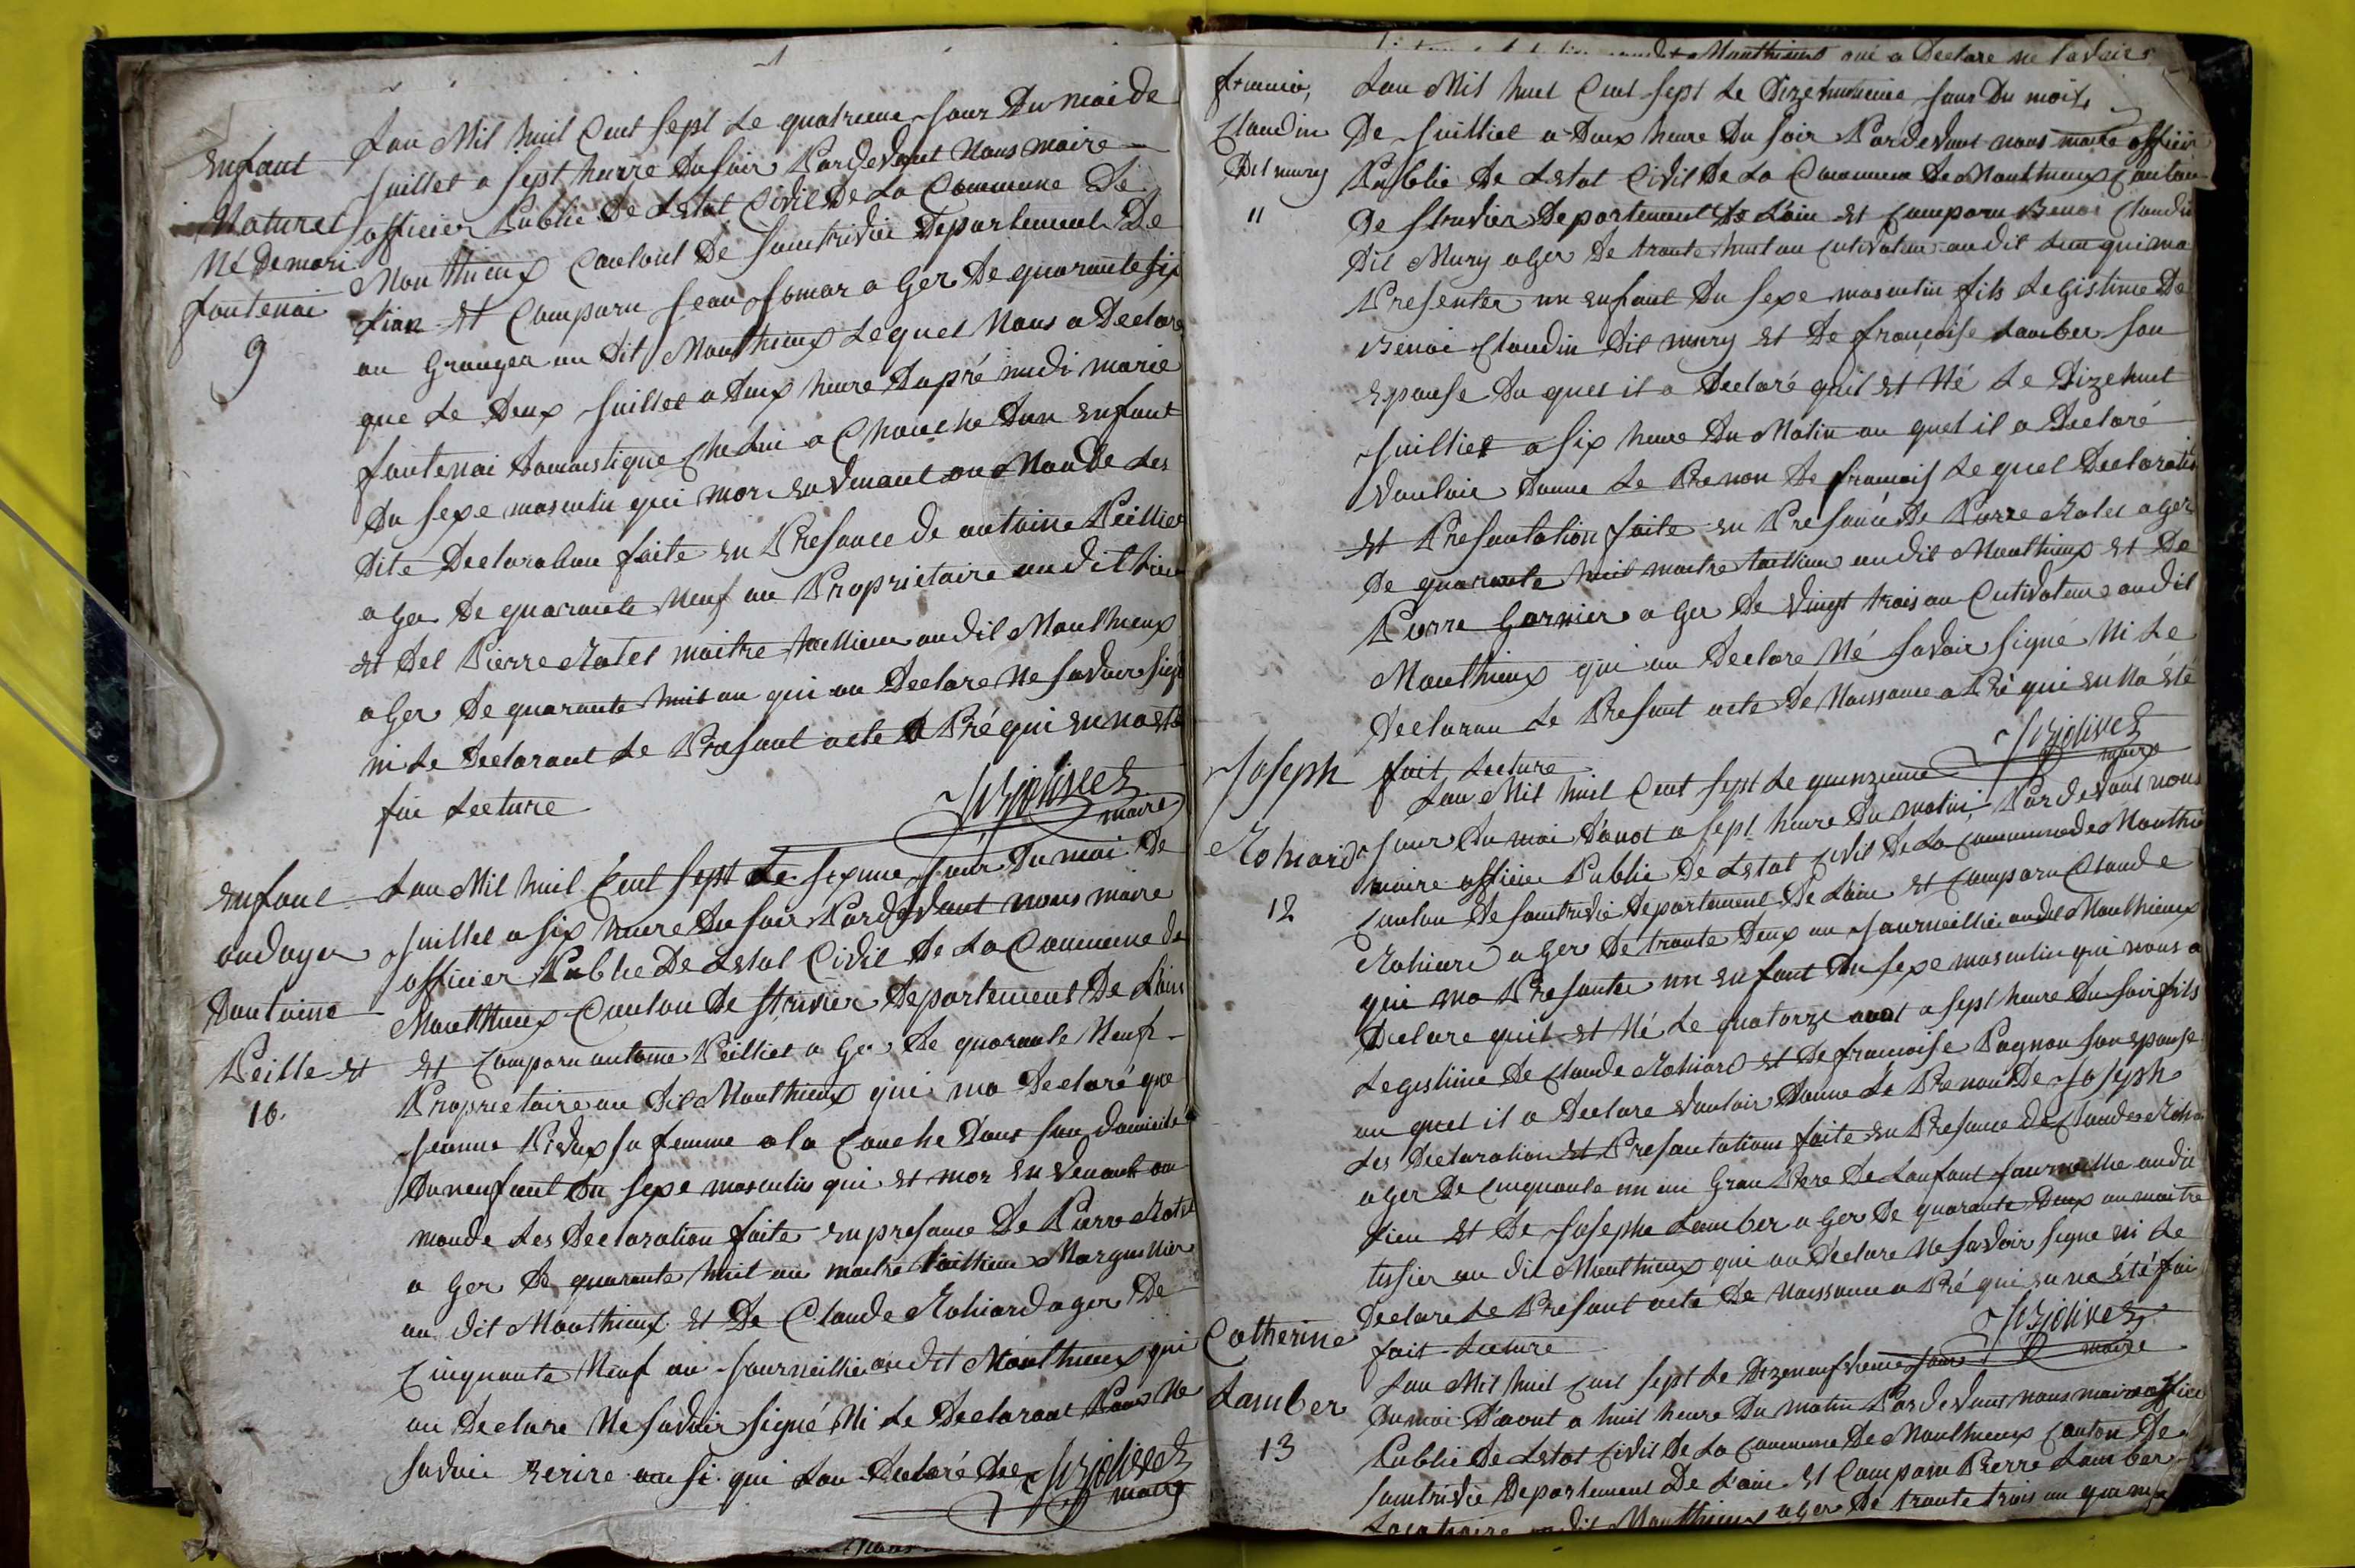 Enfant
Naturel
Né De mari
fontenai
9
Lan Mil huil Cent Sept Le quatrieme Jour Du moi de
Juillet a Sept heure Du Soir Pardevant Nous maire
officier Public De Letat Civil De La Commune De
Monthieux Canton De Saintrivié Departement De
Lain Et Comparu Jean Somar a Ger De quarante Six
an Granger au Dit Monthieux Lequel Nous a Declare
que Le Deux Juillet a Deux heure Dapré midi marie
fontenai Domestique Ché Lui a Chouché Dun Enfant
Du Sexe masculin qui mor En Venant au Monde Les
Dite Declaration faite En Presance de antoine Peillier
a Ger De quarante Neuf an Proprietaire audit Lieu
Et Del Pierre Ratel maitre taillieur audil Monthieux
a Ger De quarante huit an qui on Declare Ne Savoir Signé
ni Le Declarant Le Presant acte A Pré qui En na Eté
fai Lecture
maire
Enfant
andoyer
Dantoinne
Peille Et
10.
Lan Mil huil Cent Sept Le Sixeme Jour Du moi De
Juillet a Six heure Du Soir Pardevant nous maire
officier Public De Letat Civil De La Commune de
Monthieux Canton De Strivier Departement De Lain
Et Comparu antoine Peilliet a Ger De quarante Neuf
Proprietaire au Dit Monthieux qui ma Declaré que
Jeanne Pivdux Sa femme a la Couche Dans Son Domicile
Dun enfant Du Sexe masculin qui Et mor En Venant au
monde Les Declaration faite En presance De Pierre Ratel
a Ger De quarante huit an maitre taillieur Marguillier
au dit Monthieux Et De Claude Rohiard a ger De
Cinquante Neuf an Journeillié audit Monthieux qui
an Declare Ne Savoir Signé Ni Le Declarant Pour Ne
Savoir Ecrire ausi qui Lon Declaré
maire
Monthieux qui a Declare ne Savoir
francoi,
Claudin
Dit mury
11
Lan Mil huil Cent Sept Le Dizehuitieme Jour Du mois
De Juilliet a Deux heure Du Soir Pardevant nous maire officier
Public De Letat Civil De La Commune De Monthieux Canton
De Strivier Departement De Lain Et Comparu Benoi Claudin
Dit Mury a Ger De trante huit an Cutivateur audit Lieu qui ma
Presenter un Enfant Du Sexe masculin fils Legistime De
Benoi Claudin Dit mury Et De francoise Lamber Son
Epouse Du quel il a Declaré quil Et Né Le Dizehuit
Juilliet a Six heure Du Matin au quel il a Declaré
Vouloir Donne Le Prenon De francois Le quel Declaration
Et Presantation faite En Presance De Pierre Ratel a Ger
De quarante huit maitre taillieur audit Monthieux Et De
Pierre Garnier a Ger De Vingt trois an Cutivateur audit
Monthieux qui on Declare Né Savoir Signé Ni Le
Declaran Le Presant acte De Naissance a Pré qui En Na Eté
fait Lecture
maire
Joseph
Rohiard
12
Lan Mil huil Cent Sept Le quinzieme
Jour Du moi Daout a Sept heure Du matin Pardevant nous
maire officier Public De Letat Civil De La commune de Monthieux
Canton De Saintrivie Departement De Lain Et Comparu Claude
Rohiard a Ger De trante Deux an Journeillié audit Monthieux
qui ma Presanter un Enfant Du Sexe masculin qui nous a
Declare quil Et Né Le quatorze aout a Sept heure Du Soir fils
Legistime De Claude Rohiard Et De francoise Pagnon Son Epouse
au quel il a Declare Vouloir Donne Le Prenon De Joseph
Les Declaration Et Presantation faite En Presance De Claude
a Ger De Cinquante un an Gran Pere De Lanfant Journeillie audit
Lieu Et De Josephe Lamber a Ger De quarante Deux an maitre
tissier au dit Monthieux qui on Declare Ne Savoir Signe ni Le
Declare Le Presant acte De Naissance a Pré qui En na Eté fai
fait Lecture
maire
Catherine
Lamber
13
Lan Mil huil Cent Sept Le Dizeneufvieme Jour
Du moi Daout a huit heure Du matin Pardevant nous maire officier
Public De Letat Civil De La Commune De Monthieux Canton De
Saintrivié Departement De Lain Et Comparu Pierre Lamber
Locataire audit Monthieux a Ger De trante trois an qui ma